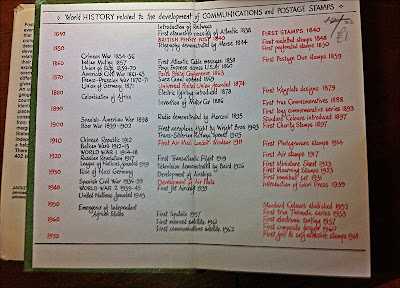 World HISTORY related to the development of COMMUNICATIONS and POSTAGE STAMPS
1840 Introduction of Railways
First steamship crossing of Atlantic 1838 FIRST STAMPS 1840
BRITISH PENNY POST 1840 First revenue
1850 Telegraphy demonstrated by Morse 1844 First perforated stamps 1850
Crimean War 1854-56
Indian Mutiny 1857 First Atlantic Cable message 1858 First Postage Due stamps 1859
1860 Union of Italy 1859-70 Pony Express across U.S.A. 1860
American Civil War 1861-65 Paris Postal Conference 1863
1870 Franco-Prussian War 1870-71 Suez Canal opened 1869
Union of Germany 1871 Universal Postal Union founded 1874 First Keyplate designs 1879
1880 Colonisation of Africa Electric lighting introduced 1878
Invention of Motor Car 1886 First true Commemoratives 1888
1890 First long commemorative series 1893
Spanish-American War 1898 Radio demonstrated by Marconi 1895 Standard Colours introduced 1897
1900 Boer War 1899-1902 First Charity Stamps 1897
First aeroplane flight by Wright Bros 1903
Trans-Siberian Railway opened 1905
1910 Chinese Republic 1912 First Air Mail London-Windsor 1911 First Photogravure stamps 1914
Balkan Wars 1912-13
WORLD WAR 1 1914-18 First Air stamps 1917
1920 Russian Revolution 1917 First Transatlantic Flight 1919
League of Nations founded 1919 First Miniature Sheet 1923
Television demonstrated by Baird 1926 First Mourning Stamps 1923
1930 Rise of Nazi Germany Development of Airships First
Spanish Civil War 1936-39 Development of Air Mails Introduction of Giori Press 1939
1940 WORLD WAR 2 1939-45 First Jet Aircraft 1939
United Nations founded 1945
1950 Standard Colours abolished 1952
Emergence of Independent First true Thematic Series 1953
African States First Sputnik 1957 First electronic sorting 1957
1960 First manned satellite 1961 First composite designs
First communications satellite 1962 First gold & self-adhesive stamps 1964
1970